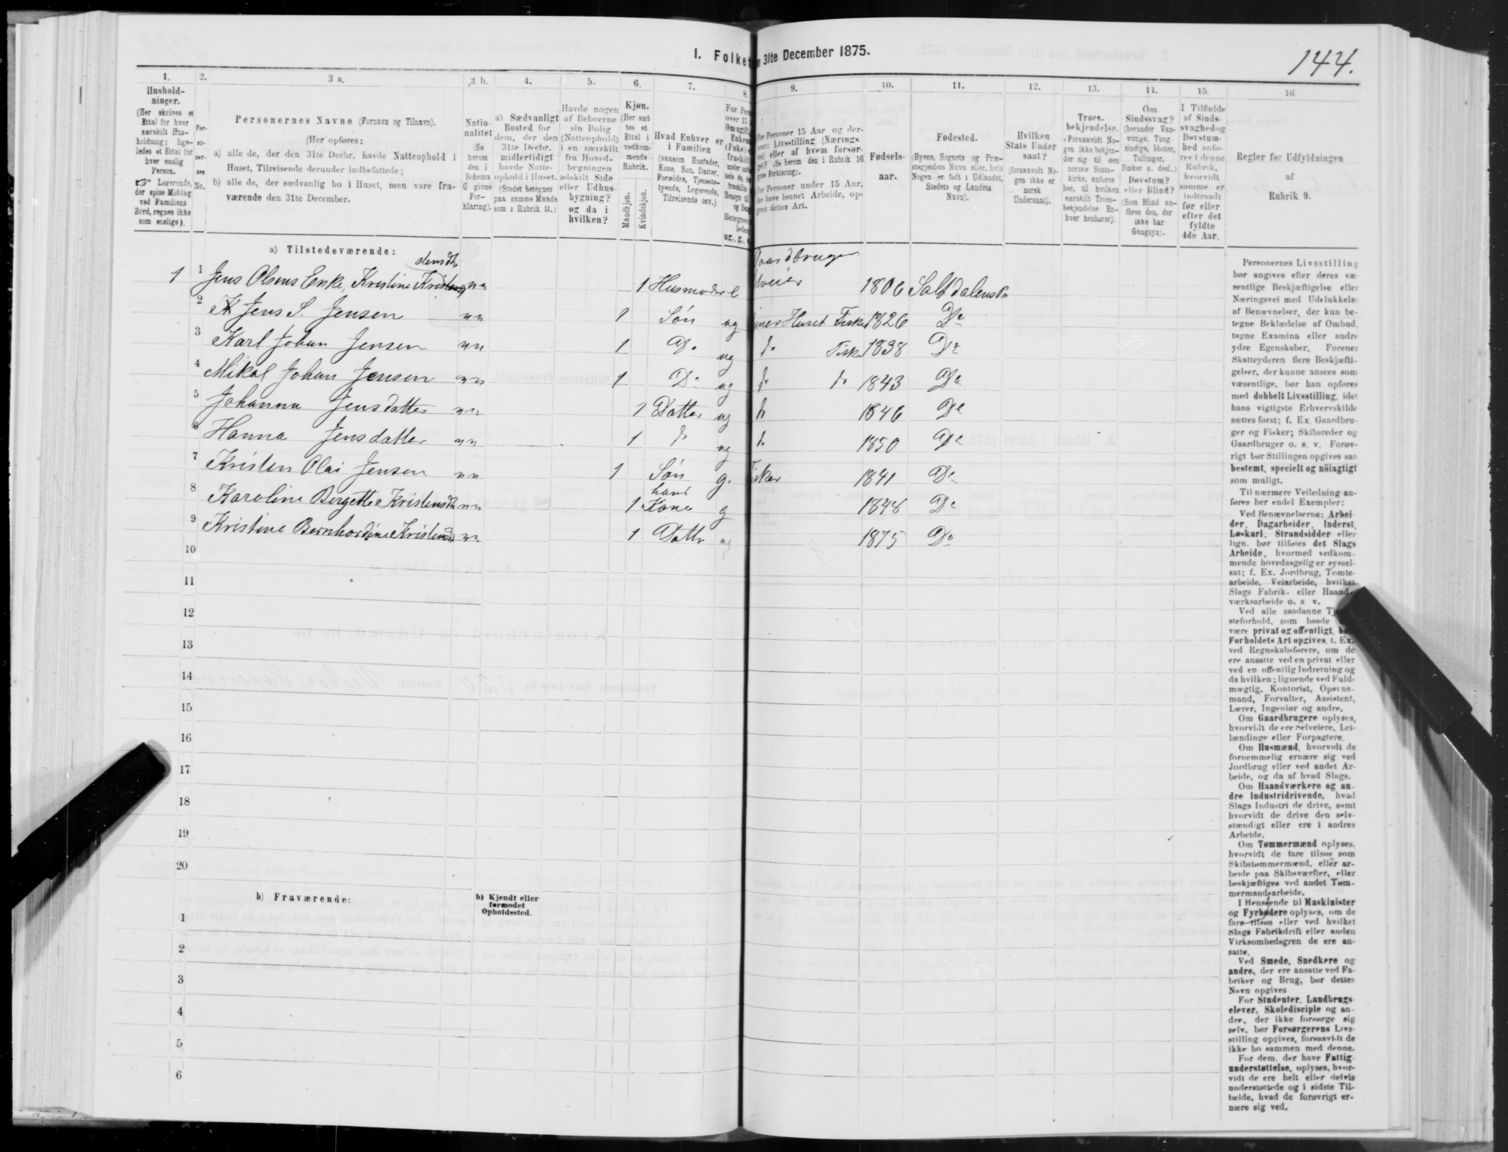 I. Folket n 31te December 1875.
144.
1. 2. 3 a. 3 b. 4. 5. 6. 7. 8. 9. 10. 11. 12. 13. 14. 15. 16.
Hushold-
ninger.
(Her skrives et
Ettal for hver
særskilt Hus-
holdning; lige-
ledes et Ettal for
hver enslig
Person.
Logerende,
der spise Middag
ved Familiens
Bord, regnes ikke
som enslige).
Per-
so-
ner-
nes
No.
Personernes Navne (Fornavn og Tilnavn).
(Her opføres:
a) alle de, der den 31te Decbr. havde Natteophold i
Huset, Tilreisende derunder indbefattede;
b) alle de, der sædvanlig bo i Huset, men vare fra-
værende den 31te December.
Natio-
nalitet
(Se
herom
den i
Schema
G givne
For-
klaring).
a) Sædvanligt
Bosted for
dem, der den
31te Decbr.
midlertidigt
havde Natte-
ophold i Huset.
(Stedet betegnes
paa samme Maade
som i Rubrik 11.)
Havde nogen
af Beboerne
sin Bolig
(Natteophold)
i en særskilt
fra Hoved-
bygningen
adskilt Side-
eller Udhus-
bygning?
og da i
hvilken?
Kjøn.
(Her sæt-
tes et
Ettal i
vedkom-
mende
Rubrik.
Mandkjøn.
Kvindekjøn.
Hvad Enhver er
i Familien
(saasom Husfader,
Kone, Søn, Datter,
Forældre, Tjeneste-
tyende, Logerende,
Tilreisende osv.)
For Personer 15 Aar og der-
over: Livsstilling (Nærings-
vei) eller af hvem forsør-
get? (Se herom den i Rubrik 16
givne Forklaring).
For Personer under 15 Aar,
der have lønnet Arbeide, op-
gives dettes Art.
Fødsels-
aar.
Fødested.
(Byens, Sognets og Præ-
stegjeldets Navn eller, hvis
Nogen er født i Udlandet,
Stedets og Landets
Navn).
Hvilken
Stats Under
saat?
(forsaavidt No-
gen ikke er
norsk
Undersaat).
Troes-
bekjendelse.
(Forsaavidt No-
gen ikke bekjen-
der sig til den
norske Stats-
kirke, anføres
her, til hvilken
særskilt Troes-
bekjendelse En-
hver henhører).
Om
Sindssvag?
(herunder Van-
vittige, Tung-
sindige, Idioter,
Tullinger,
Sinker o. desl.)
Døvstum?
eller Blind?
(Som Blind an-
føres den, der
ikke har
Gangsyn).
I Tilfælde
af Sinds-
svaghed og
Døvstum-
hed anfø-
res i denne
Rubrik,
hvorvidt
samme er
indtraadt
før eller
efter det
fyldte
4de Aar.
Regler for Udfyldningen
af
Rubrik 9.
a) Tilstedeværende:
1 1 Jens Olsens Enke, Kristine 1 Husmoder 1806
2 Jens S. Jensen 1 Søn ug 1826 Do
3 Karl Johan Jensen 1 Do ug Do 1838 Do
4 Mikal Johan Jensen 1 Do ug Do Do 1843 Do
5 Johanna Jensdatter 1 Datter ug Do 1846 Do
6 Hanna Jensdatter 1 Do ug Do 1850 Do
7 Kristen Olai Jensen 1 Søn g. Fisker 1841 Do
8 Karoline Bergette Kristensdt 1 hans Kone g 1848 Do
9 Kristine Bernhardine Kristensd 1 Datter ug 1875 Do
10
11
12
13
14
15
16
17
18
19
20
b) Fraværende:
b) Kjendt eller
formodet
Opholdssted.
1
2
3
4
5
6
Personernes Livsstilling
bør angives efter deres væ-
sentlige Beskjæftigelse eller
Næringsvei med Udelukkelse
af Benævnelser, der kun be-
tegne Beklædelse af Ombud,
tagne Examina eller andre
ydre Egenskaber. Forener
Skatteyderen flere Beskjæfti-
gelser, der kunne ansees som
væsentlige, bør han opføres
med dobbelt Livsstilling, idet
hans vigtigste Erhvervskilde
sættes først; f. Ex. Gaardbru-
ger og Fisker; Skibsreder og
Gaardbruger o. s. v. Forøv-
rigt bør Stillingen opgives saa
bestemt, specielt og nøiagtigt
som muligt.
Til nærmere Veiledning an-
føres her endel Exempler:
Ved Benævnelserne: Arbei-
der, Dagarbeider, Inderst,
Løskarl, Strandsidder eller
lign. bør tilføies det Slags
Arbeide, hvormed vedkom-
mende hovedsagelig er syssel-
sat; f. Ex. Jordbrug, Tomte-
arbeide, Veiarbeide, hvilket
Slags Fabrik- eller Haand-
værksarbeide o. s. v.
Ved alle saadanne Tje
steforhold, som baade
være privat og offentligt,
Forholdets Art opgives, t. Ex.
ved Regnskabsførere, om de
ere ansatte ved en privat eller
ved en offentlig Indretning og
da hvilken; lignende ved Fuld-
mægtig, Kontorist, Opsyns-
mand, Forvalter, Assistent,
Lærer, Ingeniør og andre.
Om Gaardbrugere oplyses,
hvorvidt de ere Selveiere, Lei-
lændinge eller Forpagtere.
Om Husmænd, hvorvidt de
fornemmelig ernære sig ved
Jordbrug eller ved andet Ar-
beide, og da af hvad Slags.
Om Haandværkere og an-
dre Industridrivende, hvad
Slags Industri de drive, samt
hvorvidt de drive den selv-
stændigt eller ere i andres
Arbeide.
Om Tømmermænd oplyses,
hvorvidt de fare tilsøs som
Skibstømmermænd, eller ar-
beide paa Skibsværfter, eller
beskjæftiges ved andet Tøm-
mermandsarbeide.
I Henseende til Maskinister
og Fyrbødere oplyses, om de
fare tilsøs eller ved hvilket
Slags Fabrikdrift eller anden
Virksomhedsgren de ere an-
satte.
Ved Smede, Snedkere og
andre, der ere ansatte ved Fa-
briker og Brug, bør dettes
Navn opgives
For Studenter, Landbrugs-
elever, Skoledisciple og an-
dre, der ikke forsørge sig
selv, bør Forsørgerens Livs-
stilling opgives, forsaavidt de
ikke bo sammen med denne.
For dem, der have Fattig-
understøttelse, oplyses, hvor-
vidt de ere helt eller delvis
understøttede og i sidste Til-
fælde, hvad de forøvrigt er-
nære sig ved.